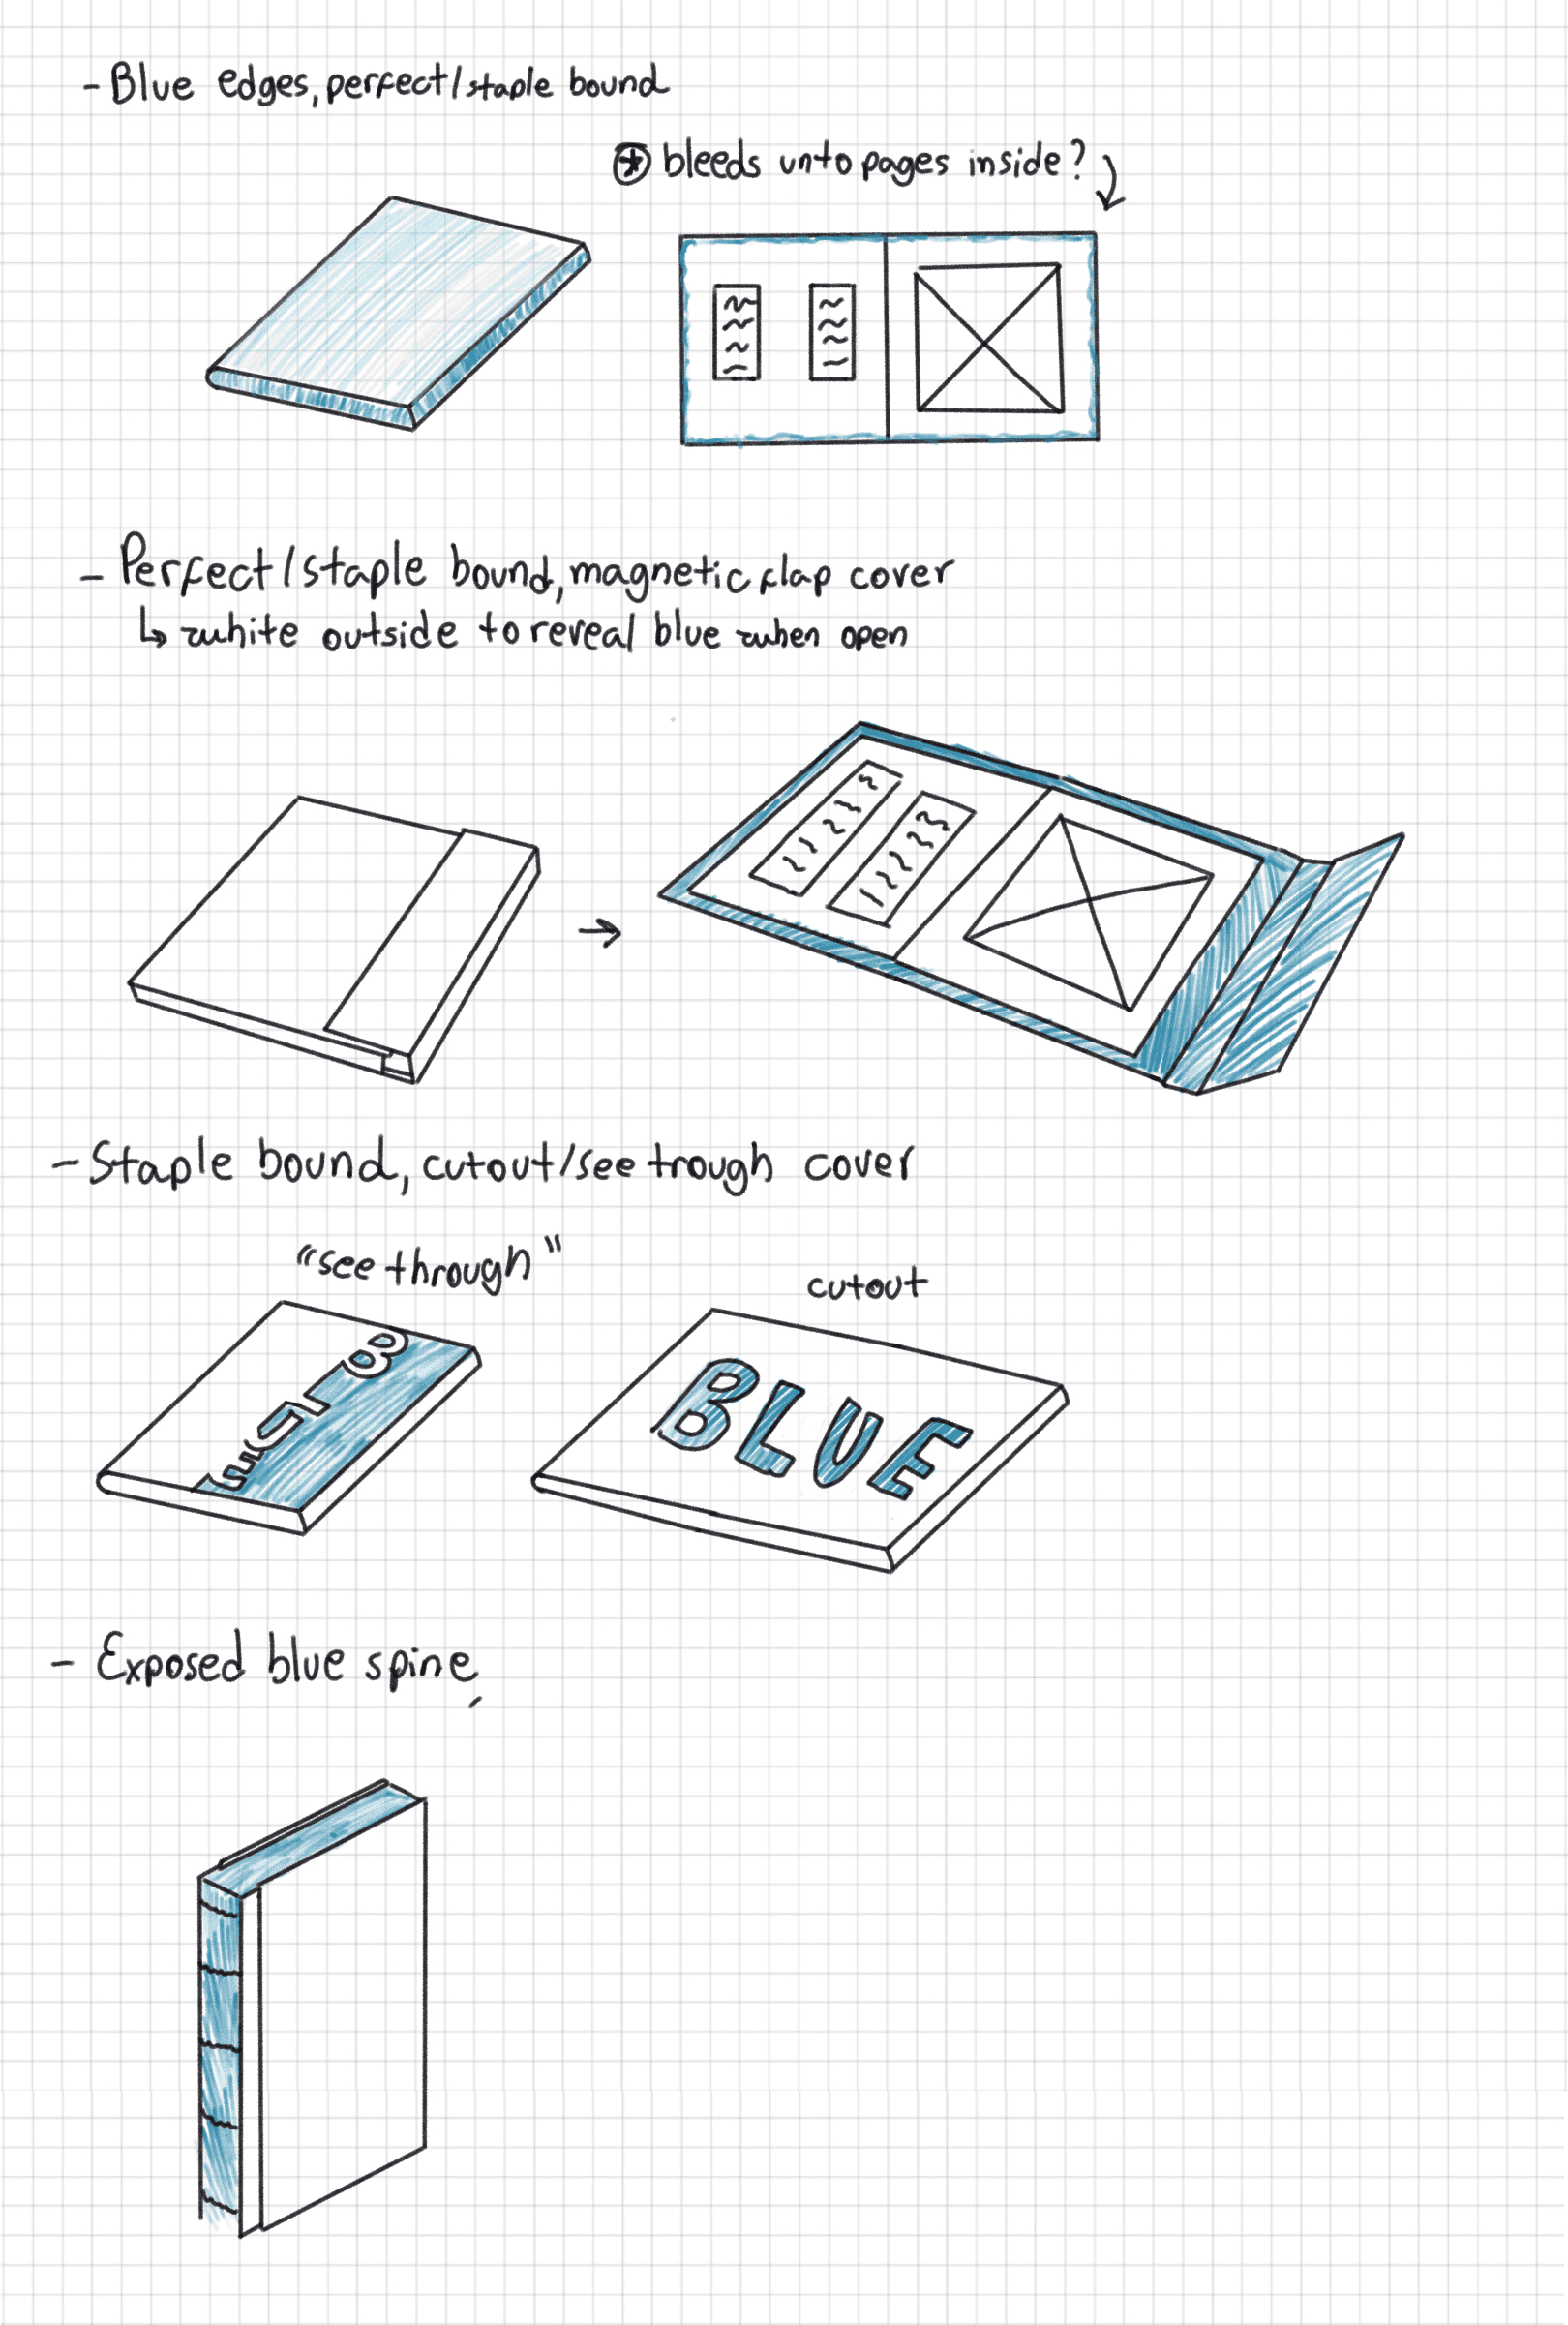 - Blue edges, perfect/staple bound
⊛ bleeds unto pages inside?
- Perfect/staple bound, magnetic flap cover
↳ white outside to reveal blue when open
- Staple bound, cutout/see trough cover
"see through"
cutout
BLUE
BLUE
- Exposed blue spine,